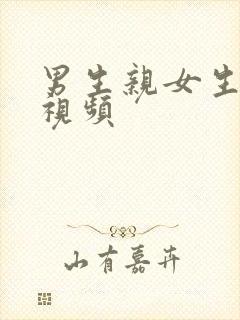 男生親女生
視頻
山有嘉卉